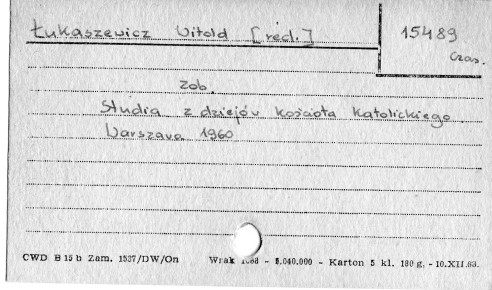 Łukaszewicz Witold [red.]
15489
czas.
zob.
Studia z dziejów kościoła katolickiego.
Warszawa 1960
CWD B 15 b Zam. 1527/DW/On Wrak - 5.040.000 - Karton 5 kl. 180 g. - 10.XII.63.